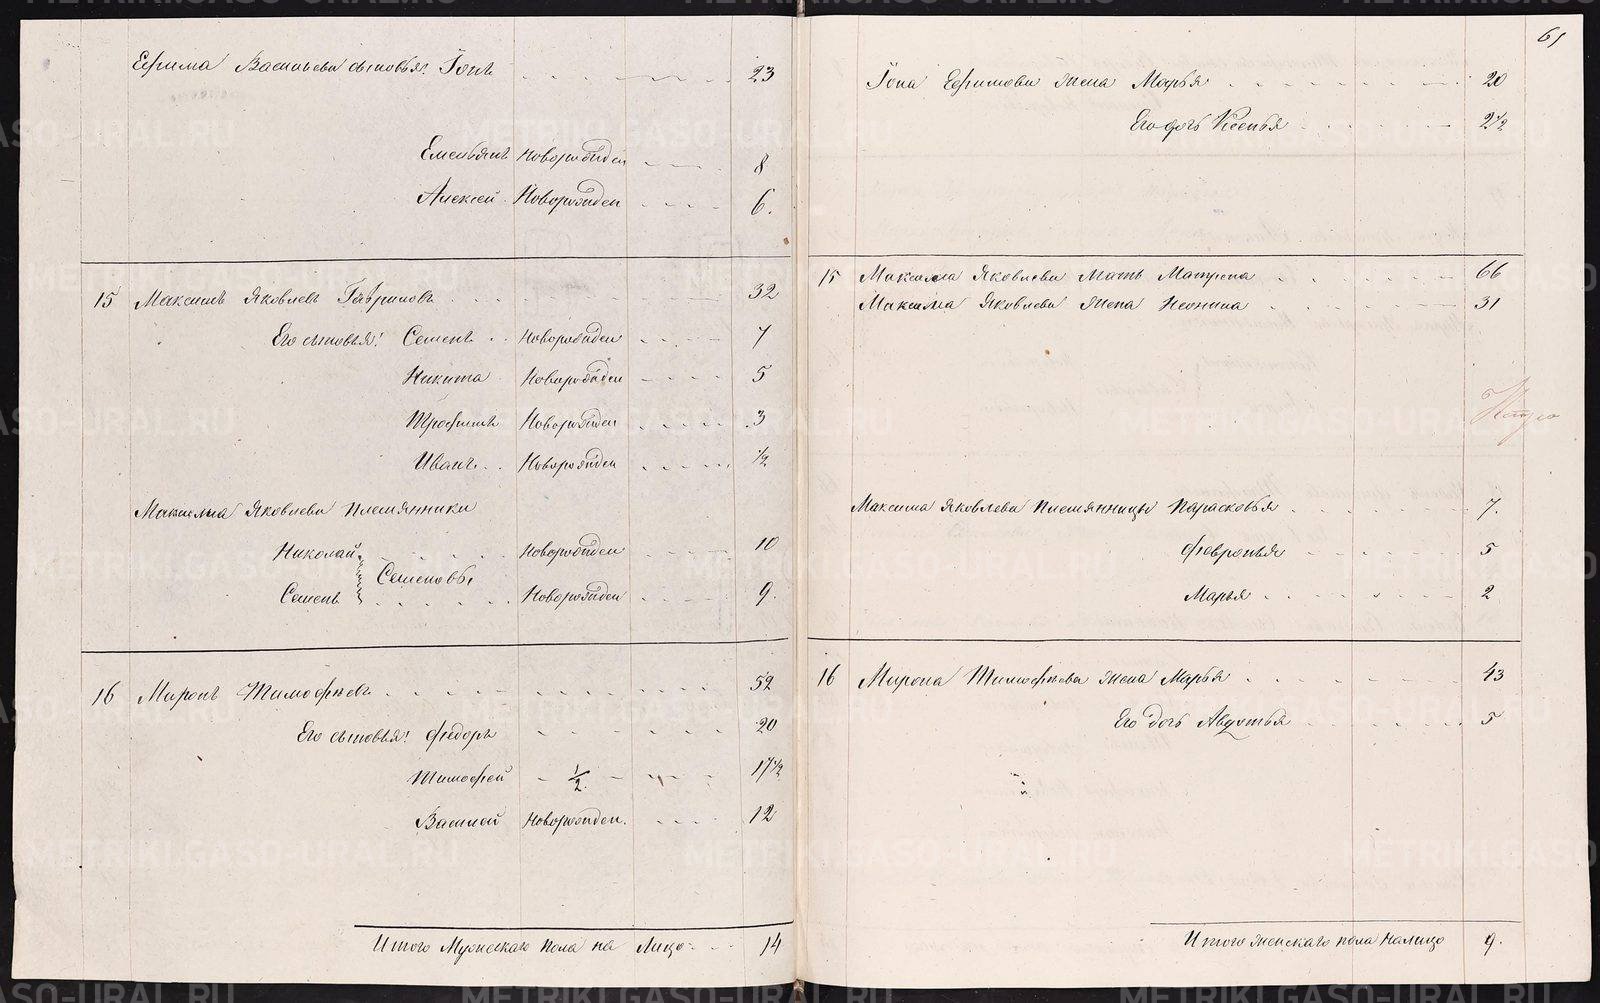 Ефима Васильева сыновья: Іона 23
Емельянъ новорожден 8
Алексей Новорожден 6.
15 Максимъ Яковлевъ Гавриловъ 32
Его сыновья: Семенъ Новорожден 7
Никита Новорожден 5
Трофимъ Новорожден 3
Иванъ Новорожден 1/2
Максима Яковлева племянники
Николай Новорожден 10
Семеновы
Семенъ Новорожден 9.
16 Миронъ Тимофѣевъ 52
Его сыновья: Федоръ 20
Тимофей 1/2 17 1/2
Василей Новорожден. 12
Итого Мужескаго пола на Лицо 14
61
Іона Ефимова жена Марья 20
Его дочь Ксенья 2 1/2
15 Максима Яковлева мать Матрена 66
Максима Яковлева жена Неонила 31
Максима Яковлева племянницы Парасковья 7.
Февронья 5
Марья 2
16 Мирона Тимофѣева жена Марья 43
Его дочь Авдотья 5
Итого женскаго пола налицо 9.
METRIKI.GASO-URAL.RU